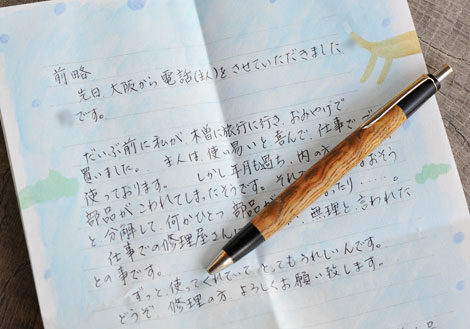 前略
先日、大阪から電話(主人)をさせていただきました
です。
だいぶ前に私が、木曽に旅行に行き、おみやげで
買いました。 主人は、使い易いと、喜んで、仕事で
使っております。 しかし年月も過ち、内の
部品がこわれてしまったそうです。それで おそう
と分解して、何かひとつ部品が いたり....。
仕事での修理屋さんに 無理と、言われた
との事です。
ずっと、使ってくれていて、とってもうれしいんです。
どうぞ、修理の方、よろしくお願い致します。